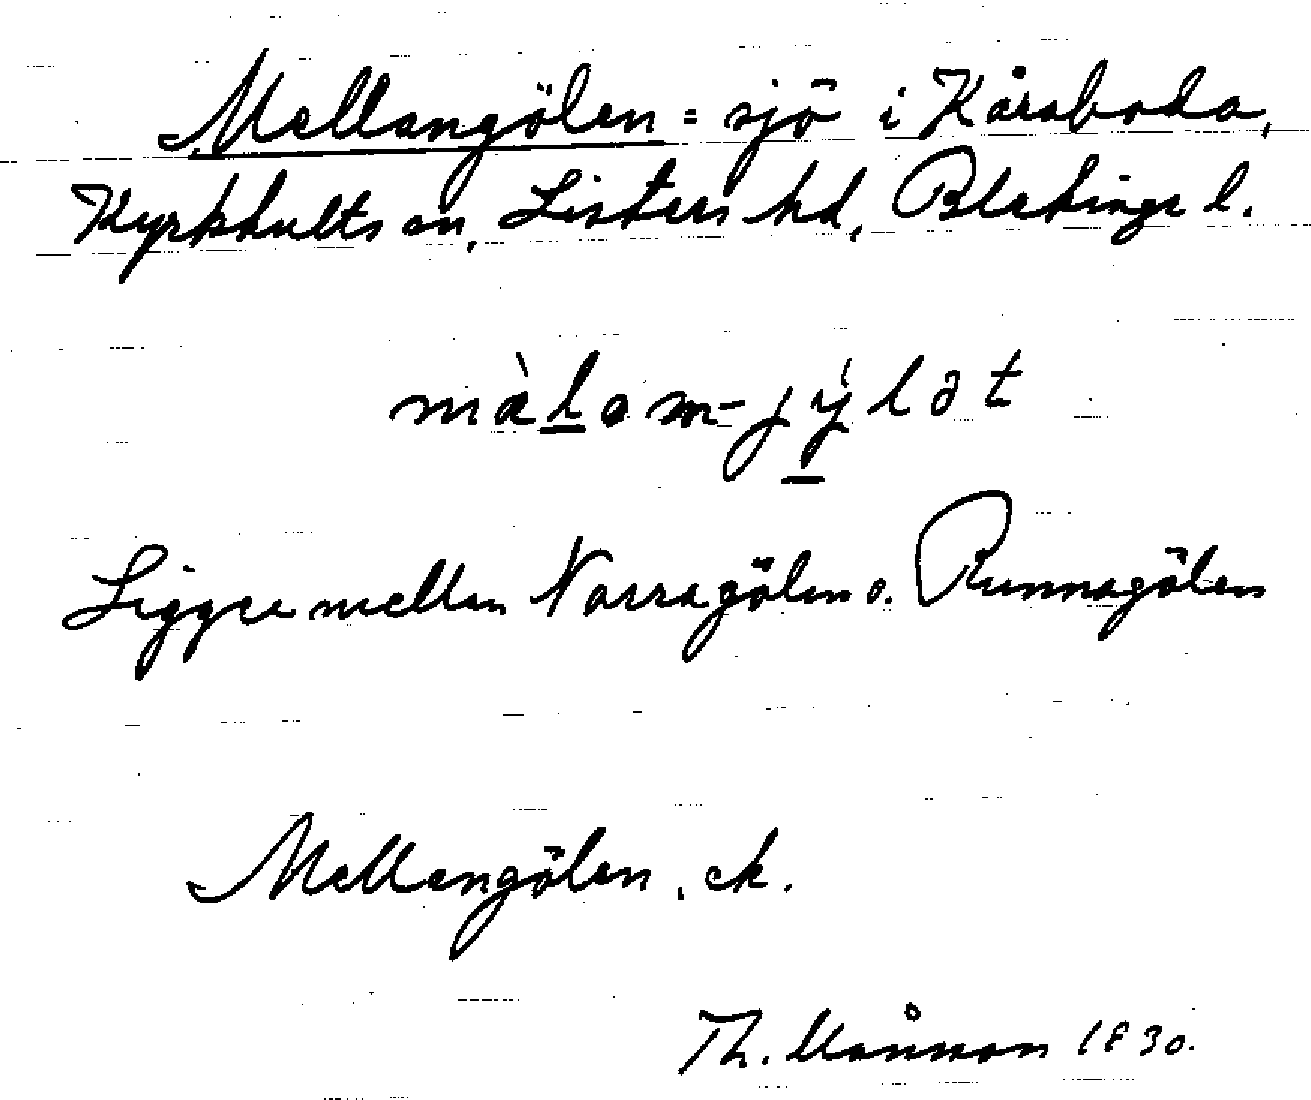 Mellangölen = sjö i Kåraboda,
Kyrkhults sn, Listers hd, Blekinge l.
màlam-jýlət
Ligger mellan Norragölen o. Runnagölen
Mellangölen, ek.
Th. 1930.